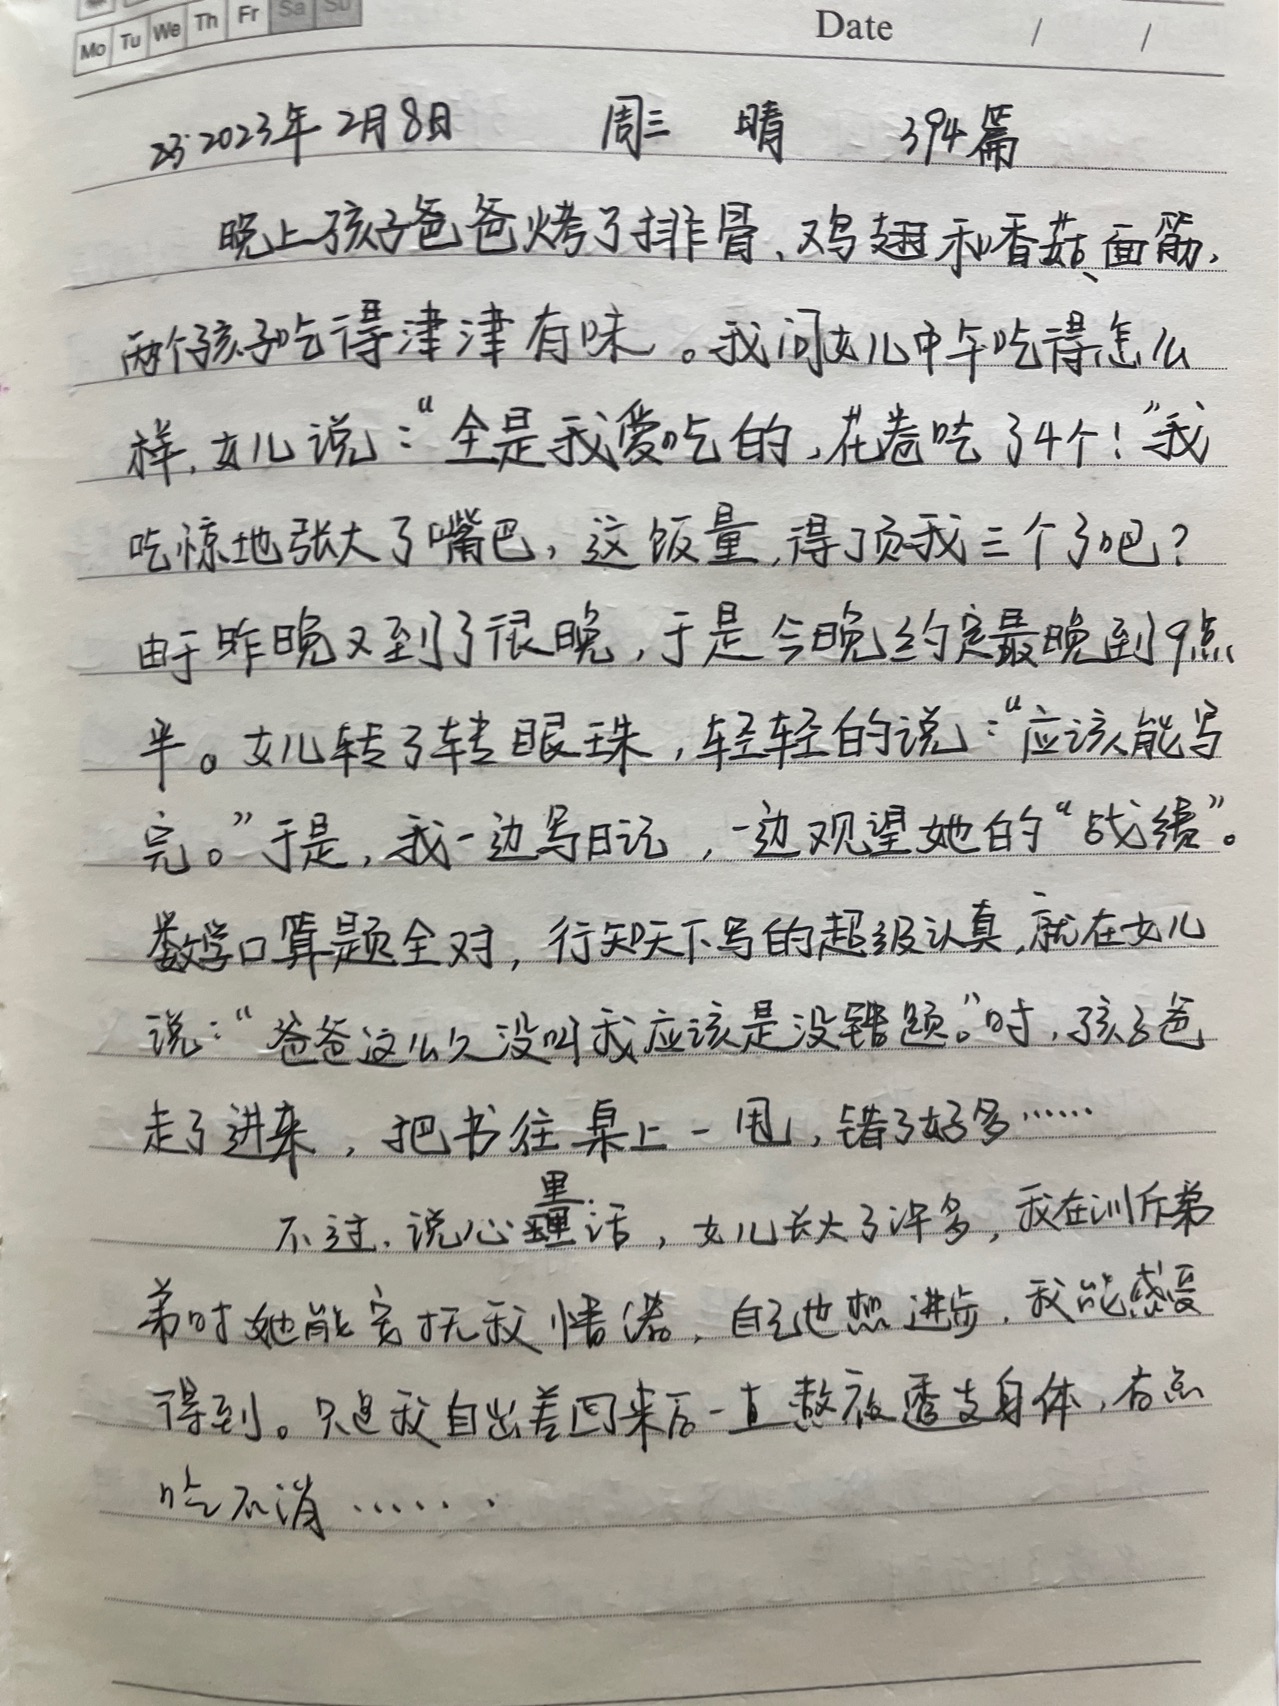 Mo Tu We Th Fr Sa Su
Date / /
23. 2023年2月8日 周三 晴 394篇
晚上孩子爸爸烤了排骨、鸡翅和香菇、面筋,
两个孩子吃得津津有味。我问女儿中午吃得怎么
样,女儿说:“全是我爱吃的,花卷吃了4个!”我
吃惊地张大了嘴巴,这饭量,得顶我三个了吧?
由于昨晚又到了很晚,于是今晚约定最晚到9点
半。女儿转了转眼珠,轻轻的说:“应该能写
完。”于是,我一边写日记,一边观望她的“战绩”。
数学口算题全对,行知天下写的超级认真,就在女儿
说:“爸爸这么久没叫我应该是没错题。”时,孩子爸
走了进来,把书往桌上一甩,错了好多……
里
不过,说心理话,女儿长大了许多,我在训斥弟
弟时她能安抚我情绪,自己也想进步,我能感受
得到。只是我自出差回来后一直熬夜透支身体,有点
吃不消……